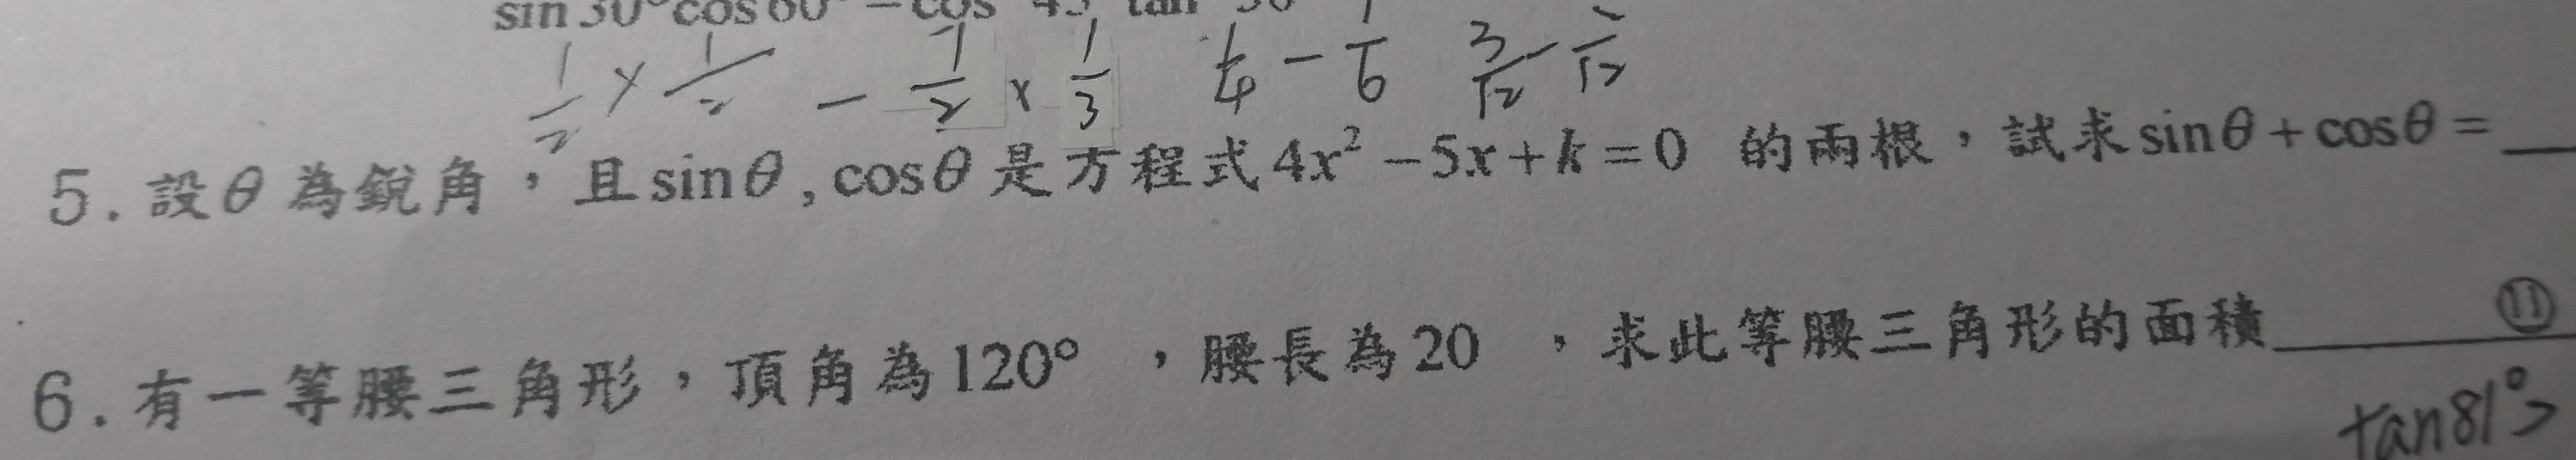 sin 30° cos 60° - cos 45 tan 30
1/2 × 1/2 - 1/2 × 1/3 1/4 - 1/6 3/12 - 2/12
5. 設θ為銳角，且sinθ, cosθ是方程式4x² -5x+k=0 的兩根，試求sinθ+cosθ= __
6. 有一等腰三角形，頂角為120° ，腰長為20 ，求此等腰三角形的面積______⑪
tan81°>